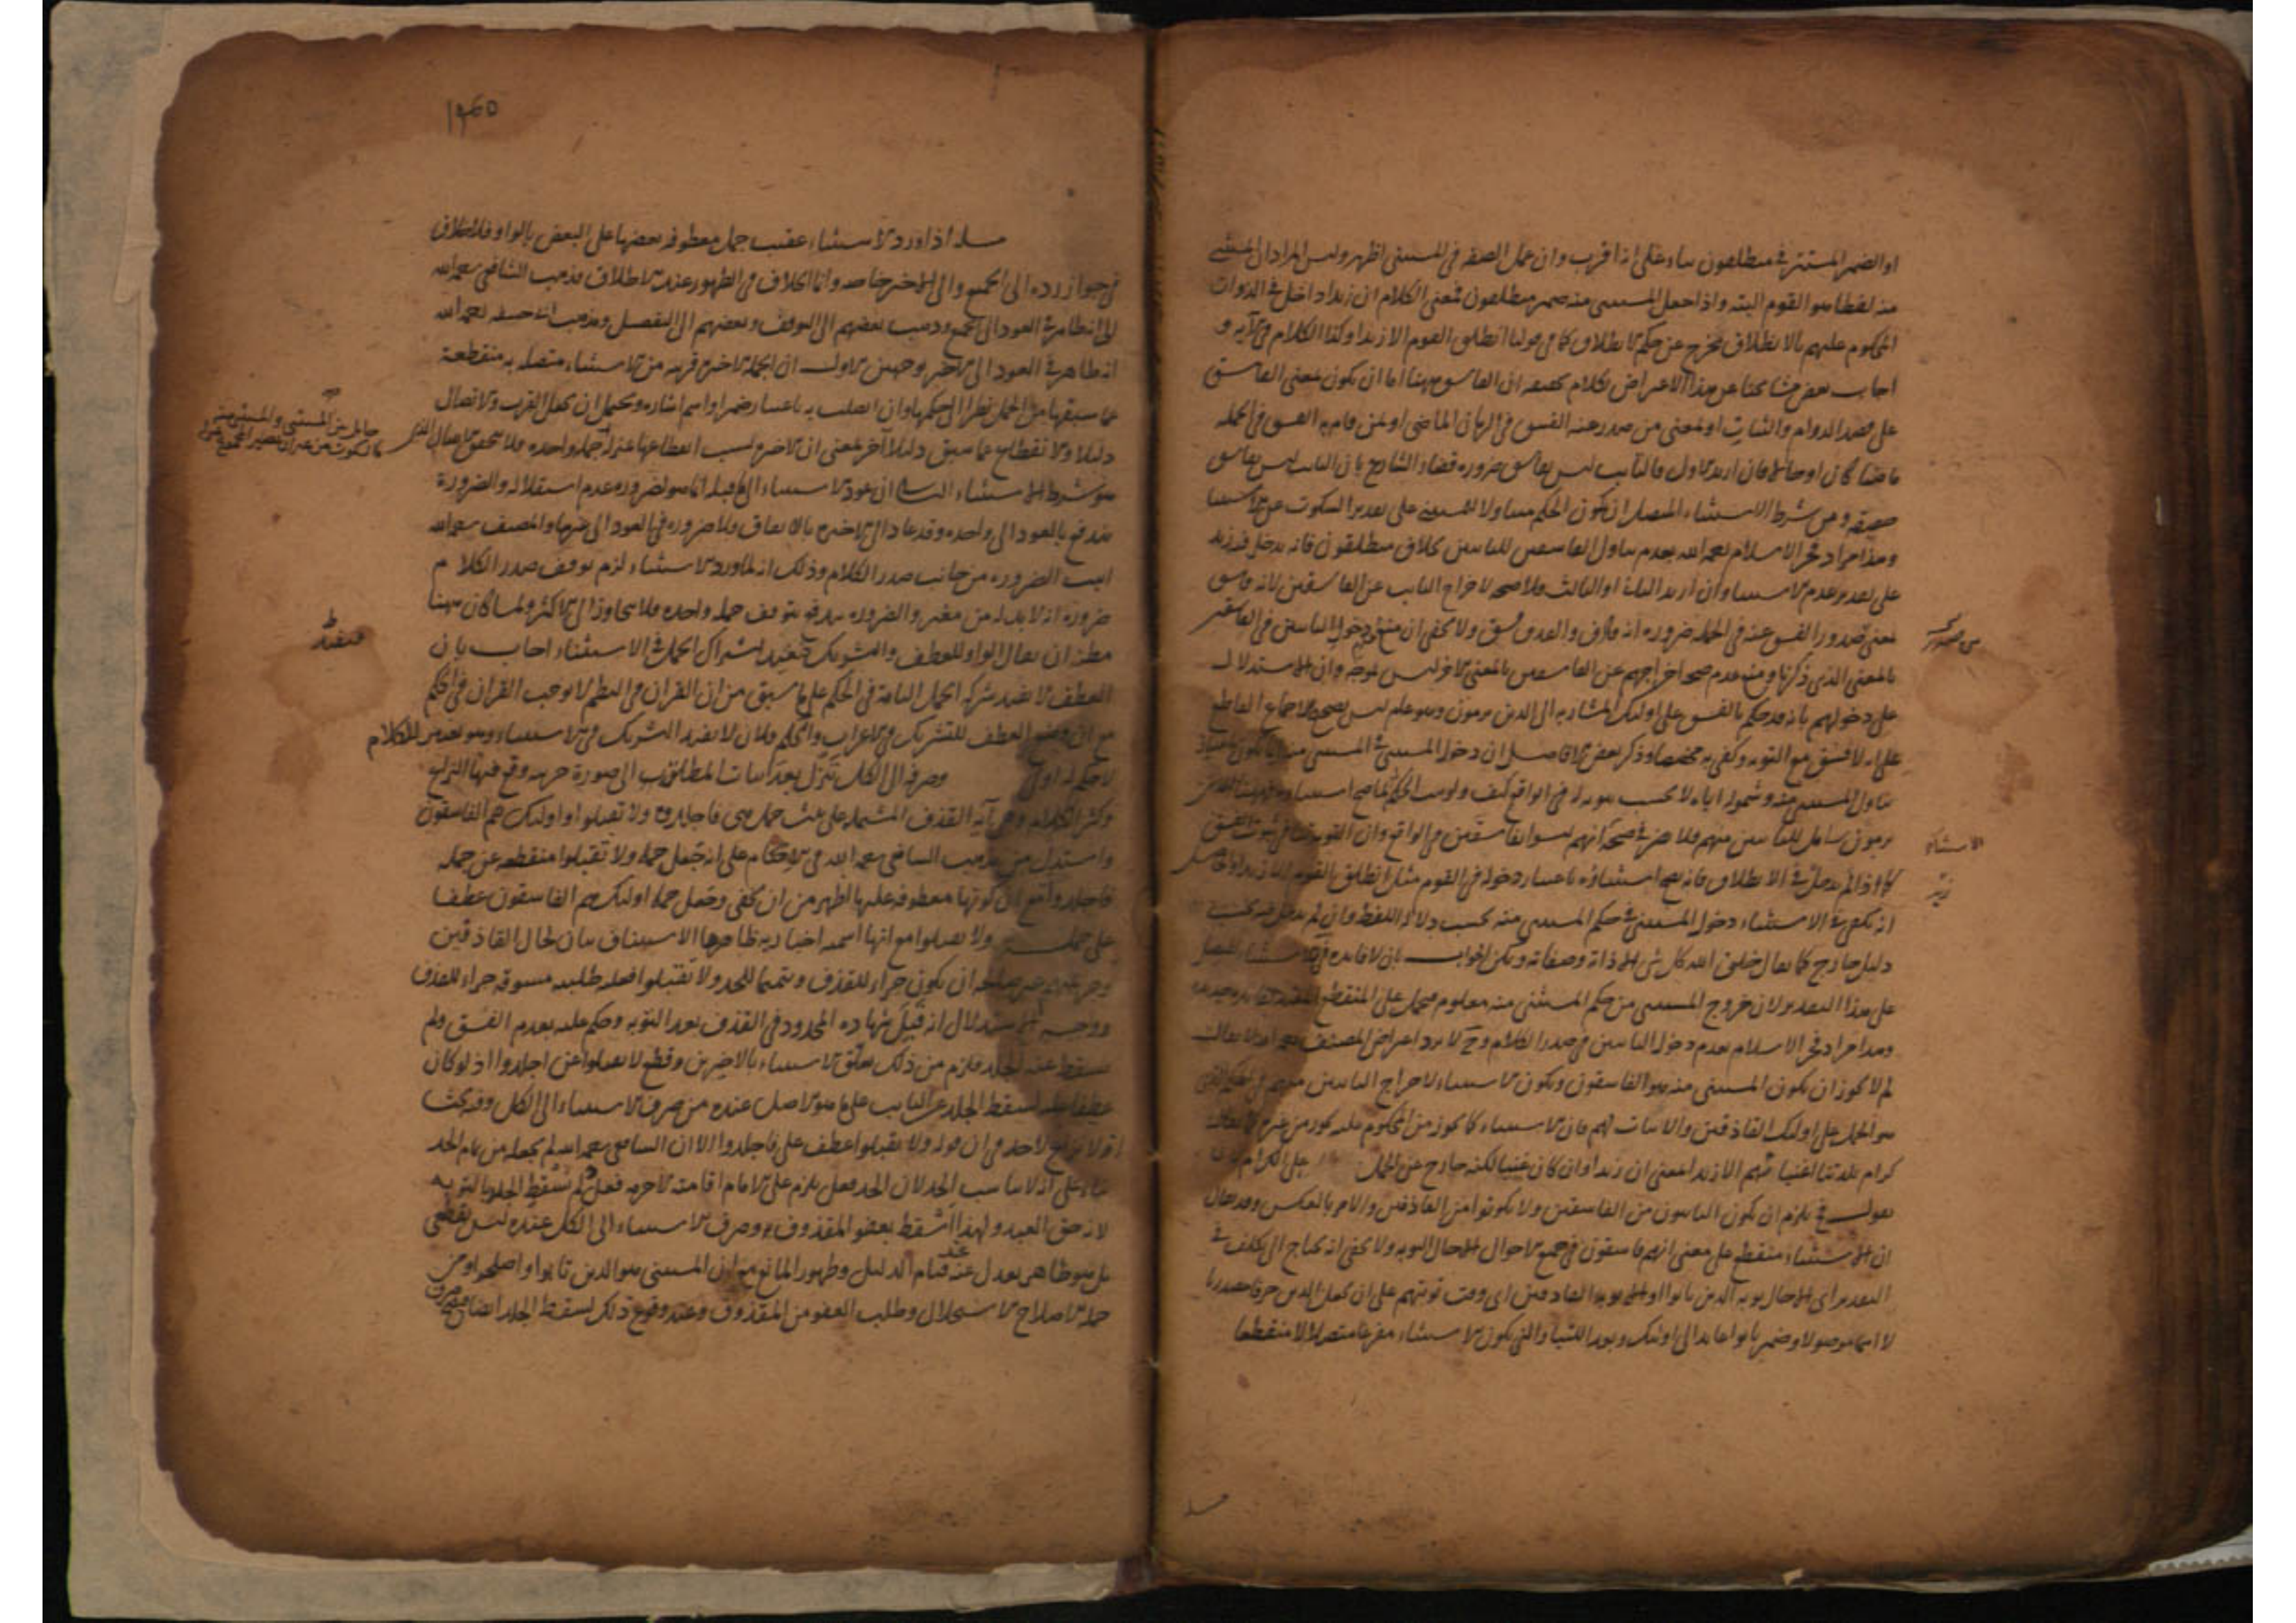 او الضمير المستتر في منطلقون بناء على انه اقرب وان عمل الصفة في المستثنى اظهر وليس المراد ان المستثنى
منه لفظا هو القوم البتة واذا جعل المستثنى منه ضمير منطلقون فمعنى الكلام ان زيدا داخل في الذوات
المحكوم عليهم بالانطلاق مخرج عن حكم الانطلاق كما في قولنا انطلق القوم الا زيدا وكذا الكلام في الآية و
اجاب بعض مشايخنا عن هذا الاعتراض بكلام تحقيقه ان الفاسق ههنا اما ان يكون بمعنى الفاسق
على قصد الدوام والثبات او بمعنى من صدر عنه الفسق في الزمان الماضي او لمن قام به الفسق في الجملة
ماضيا كان او حالا فان اريد الاول فالتائب ليس بفاسق ضرورة قضاء الشارع بان التائب ليس بفاسق
حقيقة ومن شرط الاستثناء المتصل ان يكون الحكم متناولا للمستثنى على تقدير السكوت عن الاستثناء
وهذا مراد فخر الاسلام رحمه الله بعدم تناول الفاسقين للتائبين بخلاف منطلقون فانه يدخل فيه زيد
على تقدير عدم الاستثناء وان اريد الثاني او الثالث فلا صحة لاخراج التائب عن الفاسقين لانه فاسق
بمعنى صدور الفسق عنه في الجملة ضرورة انه قاذف والقذف فسق ولا يخفى ان منع دخول التائبين في الفاسقين
بالمعنى الذي ذكرنا ومنع عدم صحة اخراجهم عن الفاسقين بالمعنى الآخر ليس بموجه وان الاستدلال
على دخولهم بانه قد حكم بالفسق على اولئك المشار به الى الذين يرمون وهو عام ليس بصحيح للاجماع القاطع
على انه لا فسق مع التوبة وكفى به مخصصا وذكر بعض الافاضل ان دخول المستثنى في المستثنى منه
تناول المستثنى منه وشموله اياه لا بحسب ثبوته له في الواقع كيف ولو ثبت الحكم لما صح استثناؤه فههنا الذين
يرمون شامل للتائبين منهم فلا ضرر في صحته انهم ليسوا بفاسقين في الواقع وان التوبة تنافي ثبوت الفسق
كما اذا لم يدخل في الانطلاق فانه يصح استثناؤه باعتبار دخوله في القوم مثل انطلق القوم الا زيدا
انه يكفي في الاستثناء دخول المستثنى في حكم المستثنى منه بحسب دلالة اللفظ وان لم يدخل فيه بحسب
دليل خارج كما يقال خلق الله كل شيء الا ذاته وصفاته ويمكن الجواب بان لا فائدة في الاستثناء المتصل
على هذا التقدير لان خروج المستثنى من حكم المستثنى منه معلوم فيحمل على المنقطع
وهذا مراد فخر الاسلام بعدم دخول التائبين في صدر الكلام وح لا يرد اعتراض المصنف
لم لا يجوز ان يكون المستثنى منه هو الفاسقون ويكون الاستثناء لاخراج التائبين منهم
هو الحمل على اولئك القاذفين والاثبات لهم فان الاستثناء كما يجوز من المحكوم عليه يجوز من غيره
كرام بلدتنا اغنياؤهم الا زيدا بمعنى ان زيدا وان كان غنيا لكنه خارج عن الحمل على الكرام
نقول فح يلزم ان يكون التائبون من الفاسقين ولا يكونوا من القاذفين والامر بالعكس وقد يقال
ان الاستثناء منقطع على معنى انهم فاسقون في جميع الاحوال الا حال التوبة ولا يخفى انه يحتاج الى تكلف في
التقدير اي الا حال توبة الذين تابوا او الا توبة القاذفين اي وقت توبتهم على ان يجعل الذين حرفا مصدريا
لا اسما موصولا وضمير تابوا عائد الى اولئك وبعد اللتيا والتي يكون الاستثناء مفرغا متصلا لا منقطعا
الاستثناء
زيد
مسلة
١٩٤٥
مسلة اذا ورد الاستثناء عقيب جمل معطوفة بعضها على البعض بالواو فلا خلاف
في جواز رده الى الجميع والى الاخير خاصة وانما الخلاف في الظهور عند الاطلاق فذهب الشافعي رحمه الله
الى انه ظاهر في العود الى الجميع وذهب بعضهم الى التوقف وبعضهم الى التفصيل ومذهب ابي حنيفة رحمه الله
انه ظاهر في العود الى الاخير لوجهين الاول ان الجملة الاخيرة قريبة من الاستثناء متصلة به منقطعة
عما سبقها من الجمل نظرا الى حكمها وان اتصلت به باعتبار ضمير او اسم اشارة ويحتمل ان يجعل القرب والاتصال
دليلا والانقطاع عما سبق دليلا آخر بمعنى ان الاخيرة بسبب انقطاعها بمنزلة جملة واحدة فلا يتحقق الاتصال الذي
هو شرط الاستثناء الثاني ان عود الاستثناء الى ما قبله انما هو لضرورة عدم استقلاله والضرورة
تندفع بالعود الى واحدة وقد عاد الى الاخيرة بالاتفاق فلا ضرورة في العود الى غيرها والمصنف رحمه الله
اثبت الضرورة من جانب صدر الكلام وذلك انه لما ورد الاستثناء لزم توقف صدر الكلام
ضرورة انه لا بد له من مغير والضرورة تندفع بتوقف جملة واحدة فلا يتجاوز الى الاكثر ولما كان ههنا
مظنة ان يقال الواو للعطف والتشريك فيفيد اشتراك الجمل في الاستثناء اجاب بان
العطف لا يفيد شركة الجمل التامة في الحكم على ما سبق من ان القران في النظم لا يوجب القران في الحكم
مع ان وضع العطف للتشريك في الاعراب والحكم فلان لا يفيد التشريك في الاستثناء وهو تغيير للكلام
لا حكم له اولى وصرفه الى الكل تنزل بعد اثبات المطلوب الى صورة جزئية وقع فيها النزاع
وكثر الكلام وهي آية القذف المشتملة على ثلث جمل هي فاجلدوا ولا تقبلوا واولئك هم الفاسقون
واستدل من مذهب الشافعي رحمه الله في الاحكام على انه جعل جملة ولا تقبلوا منقطعة عن جملة
فاجلدوا مع ان كونها معطوفة عليها اظهر من ان يخفى وجعل جملة اولئك هم الفاسقون عطفا
على جملة ولا تقبلوا مع انها اسمية اخبارية ظاهرها الاستيناف بيان لحال القاذفين
وجريمتهم غير صالحة ان يكون جزاء للقذف وتتميما للحد ولا تقبلوا فعلية طلبية مسوقة جزاء للقذف
ووجه الاستدلال انه قبل شهادة المحدود في القذف بعد التوبة وحكم عليه بعدم الفسق ولم
يسقط عنه الجلد فلزم من ذلك تعلق الاستثناء بالاخيرين وقطع لا تقبلوا عن اجلدوا اذ لو كان
عطفا عليه لسقط الجلد عن التائب على ما هو الاصل عنده من صرف الاستثناء الى الكل وفيه بحث
اذ لا نزاع لاحد في ان قوله ولا تقبلوا عطف على فاجلدوا الا ان الشافعي رحمه الله لم يجعله من تمام الحد
بناء على انه لا يناسب الحد لان الحد فعل يلزم على الامام اقامته لا حرمة فعل ولم يسقط الجلد بالتوبة
لانه حق العبد ولهذا اسقط بعفو المقذوف وصرف الاستثناء الى الكل عنده ليس بقطعي
بل هو ظاهر يعدل عنه عند قيام الدليل وظهور المانع مع ان المستثنى هو الذين تابوا واصلحوا ومن
جملة الاصلاح الاستحلال وطلب العفو من المقذوف وعند وقوع ذلك يسقط الجلد ايضا